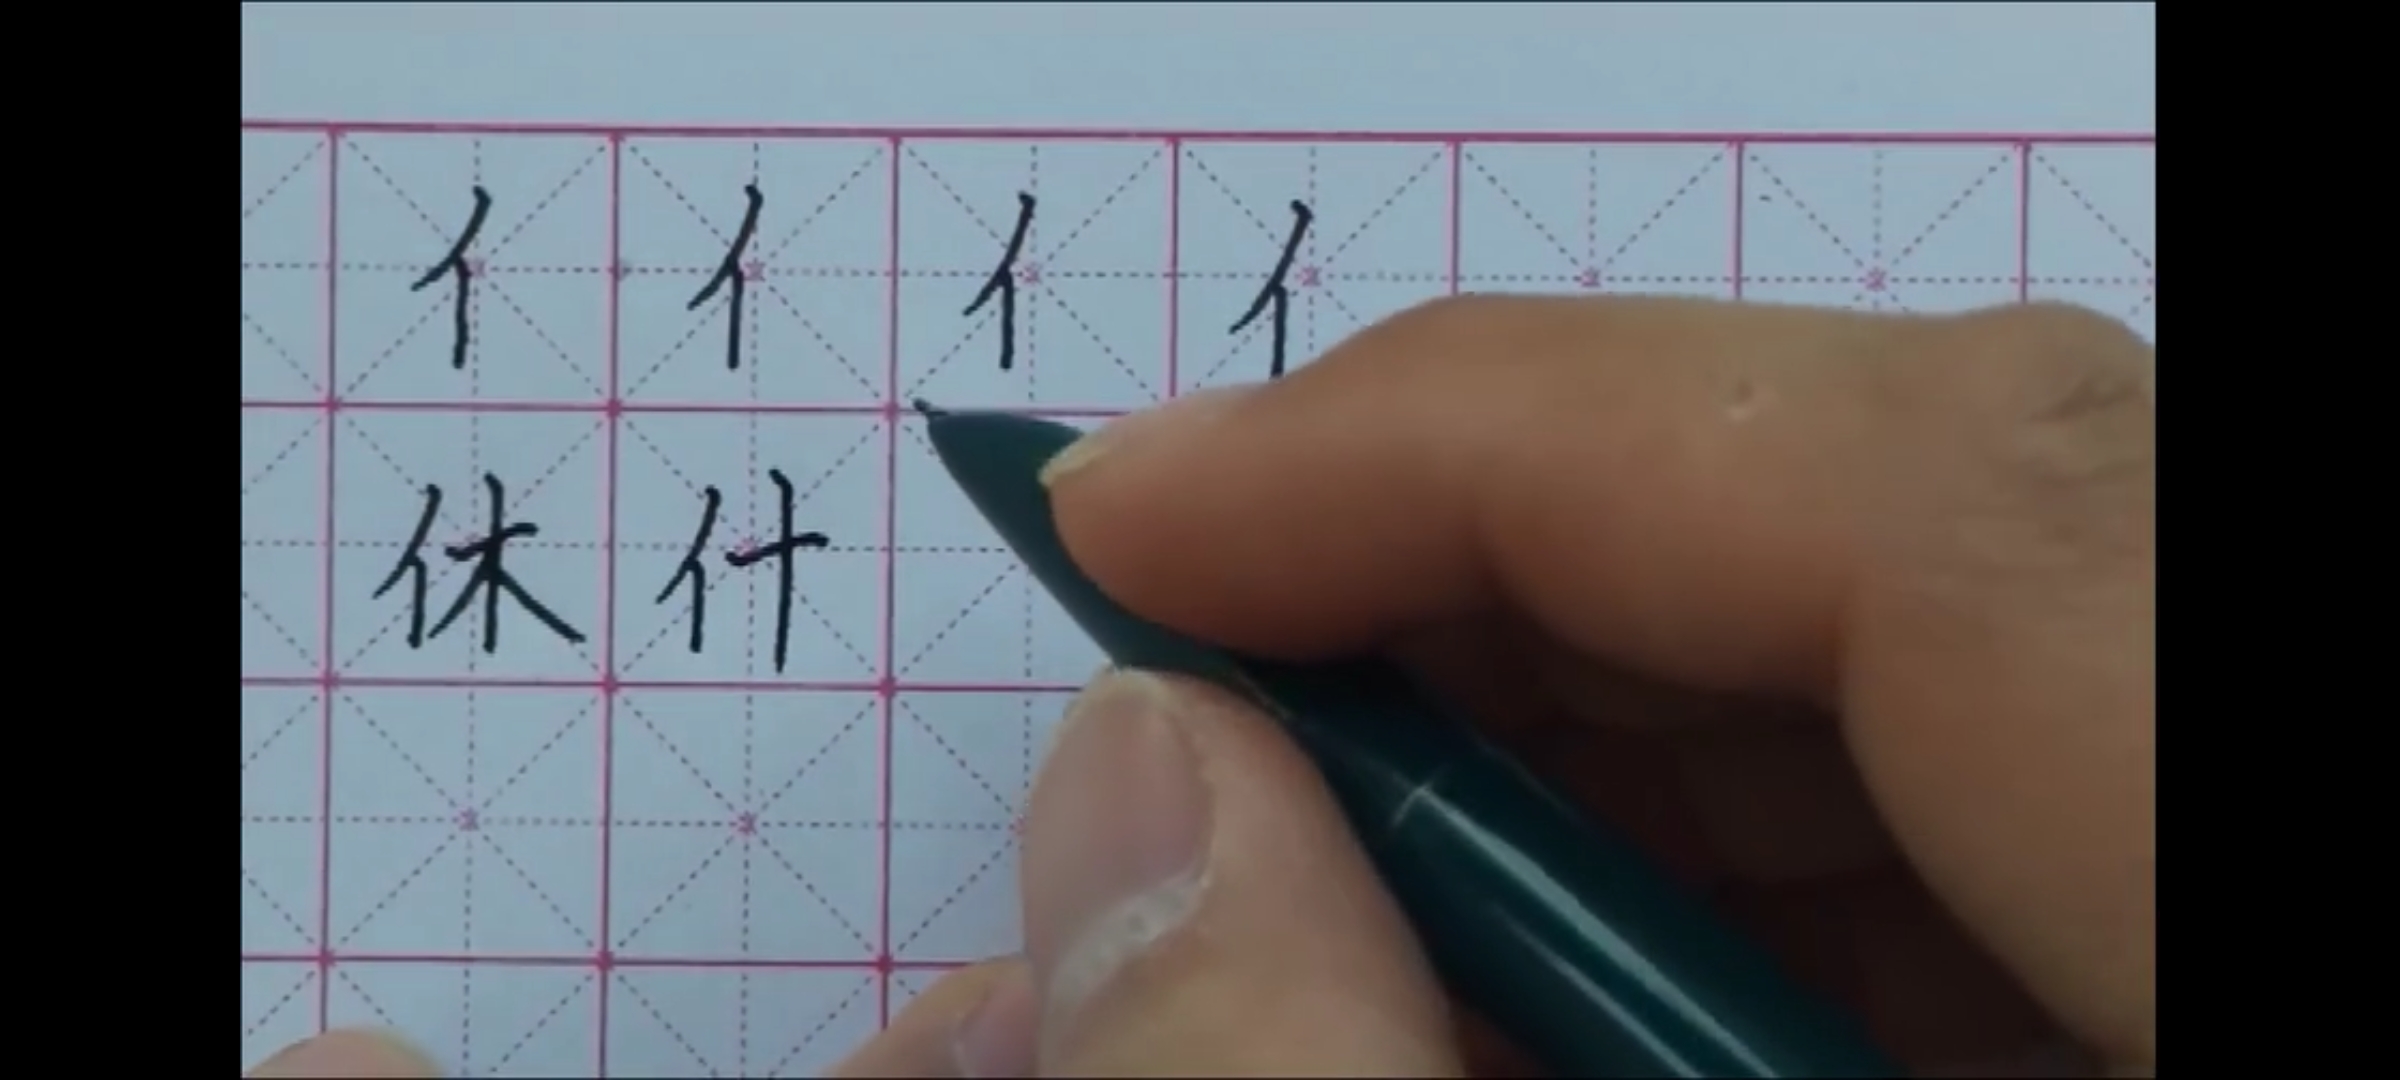 亻 亻 亻 亻
休 什